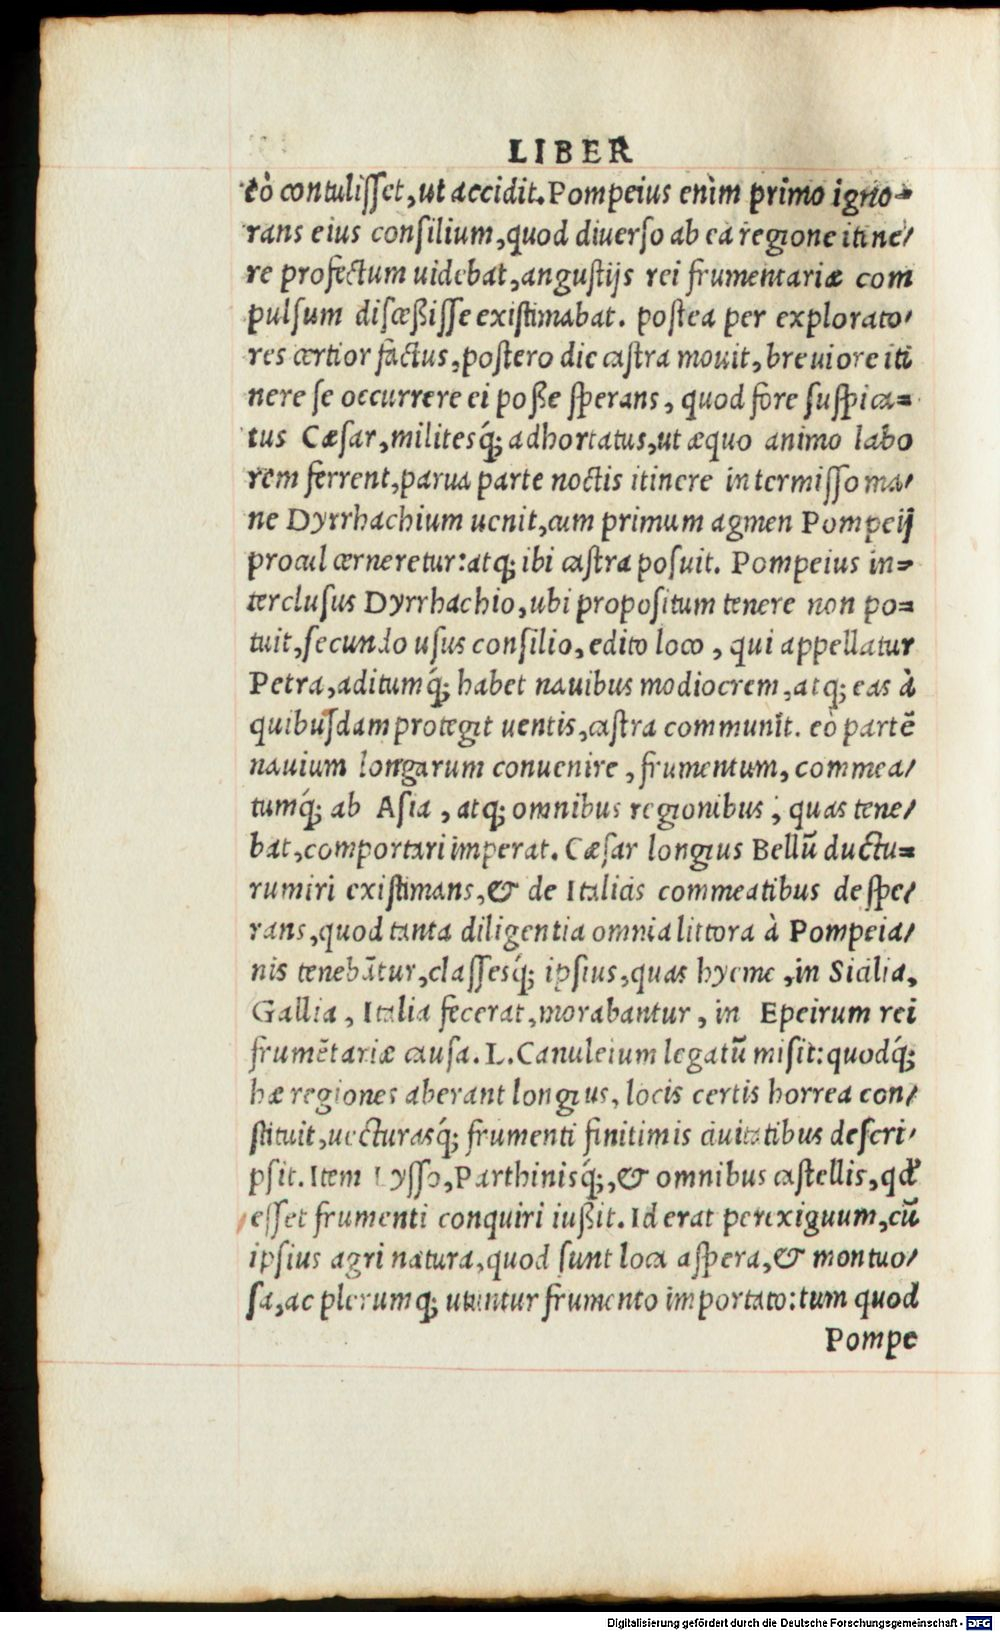 LIBER
eò contulisset, ut accidit. Pompeius enim primo igno-
rans eius consilium, quod diuerso ab ea regione itine/
re profectum uidebat, angustijs rei frumentariæ com
pulsum discæßisse existimabat. postea per explorato/
res certior factus, postero die castra mouit, breuiore iti
nere se occurrere ei poße sperans, quod fore suspica-
tus Cæsar, militesq́; adhortatus, ut æquo animo labo
rem ferrent, parua parte noctis itinere intermisso ma/
ne Dyrrhachium uenit, cum primum agmen Pompeij
procul cerneretur: atq; ibi castra posuit. Pompeius in-
terclusus Dyrrhachio, ubi propositum tenere non po-
tuit, secundo usus consilio, edito loco, qui appellatur
Petra, aditumq́; habet nauibus modiocrem, atq; eas à
quibusdam protegit uentis, castra communit. eò partē
nauium longarum conuenire, frumentum, commea/
tumq́; ab Asia, atq; omnibus regionibus, quas tene/
bat, comportari imperat. Cæsar longius Bellū ductu-
rum iri existimans, & de Italicis commeatibus despe/
rans, quod tanta diligentia omnia littora à Pompeia/
nis tenebātur, classesq́; ipsius, quas hyeme, in Sicilia,
Gallia, Italia fecerat, morabantur, in Epeirum rei
frumētariæ causa. L. Canuleium legatū misit: quodq́;
hæ regiones aberant longius, locis certis horrea con/
stituit, uecturasq́; frumenti finitimis ciuitatibus descri/
psit. Item Lysso, Parthinisq́;, & omnibus castellis, qđ
esset frumenti conquiri iußit. Id erat perexiguum, cū
ipsius agri natura, quod sunt loca aspera, & montuo/
sa, ac plerumq; utuntur frumento importato: tum quod
Pompe
Digitalisierung gefördert durch die Deutsche Forschungsgemeinschaft - DFG